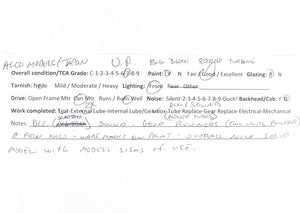 ALCO MODELS/JAPAN U.P. BIG BLOW SOUND TURBINE
Overall condition/TCA Grade: C-1-2-3-4-5-6-7-8-9 Paint: CP N Fair / Good / Excellent Glazing: Y N
Tarnish: None Mild / Moderate / Heavy Lighting: Front Rear Other:
Drive: Open Frame Mtr Can Mtr Runs / Runs Well Noise: Silent-2-3-4-5-6-7-8-9-Ouch! Backhead/Cab: Y N
DCC/SOUND
Work completed: Test-External Lube-Internal Lube/Gearbox/Tube Replace-Gear Replace-Electrical-Mechanical
Notes: DCC SOUND - GOOD RUNNERS
A FEW NICS - WEAR MARKS ON PAINT - OVERALL NICE SOLID
MODEL WITH MODEST SIGNS OF USE.